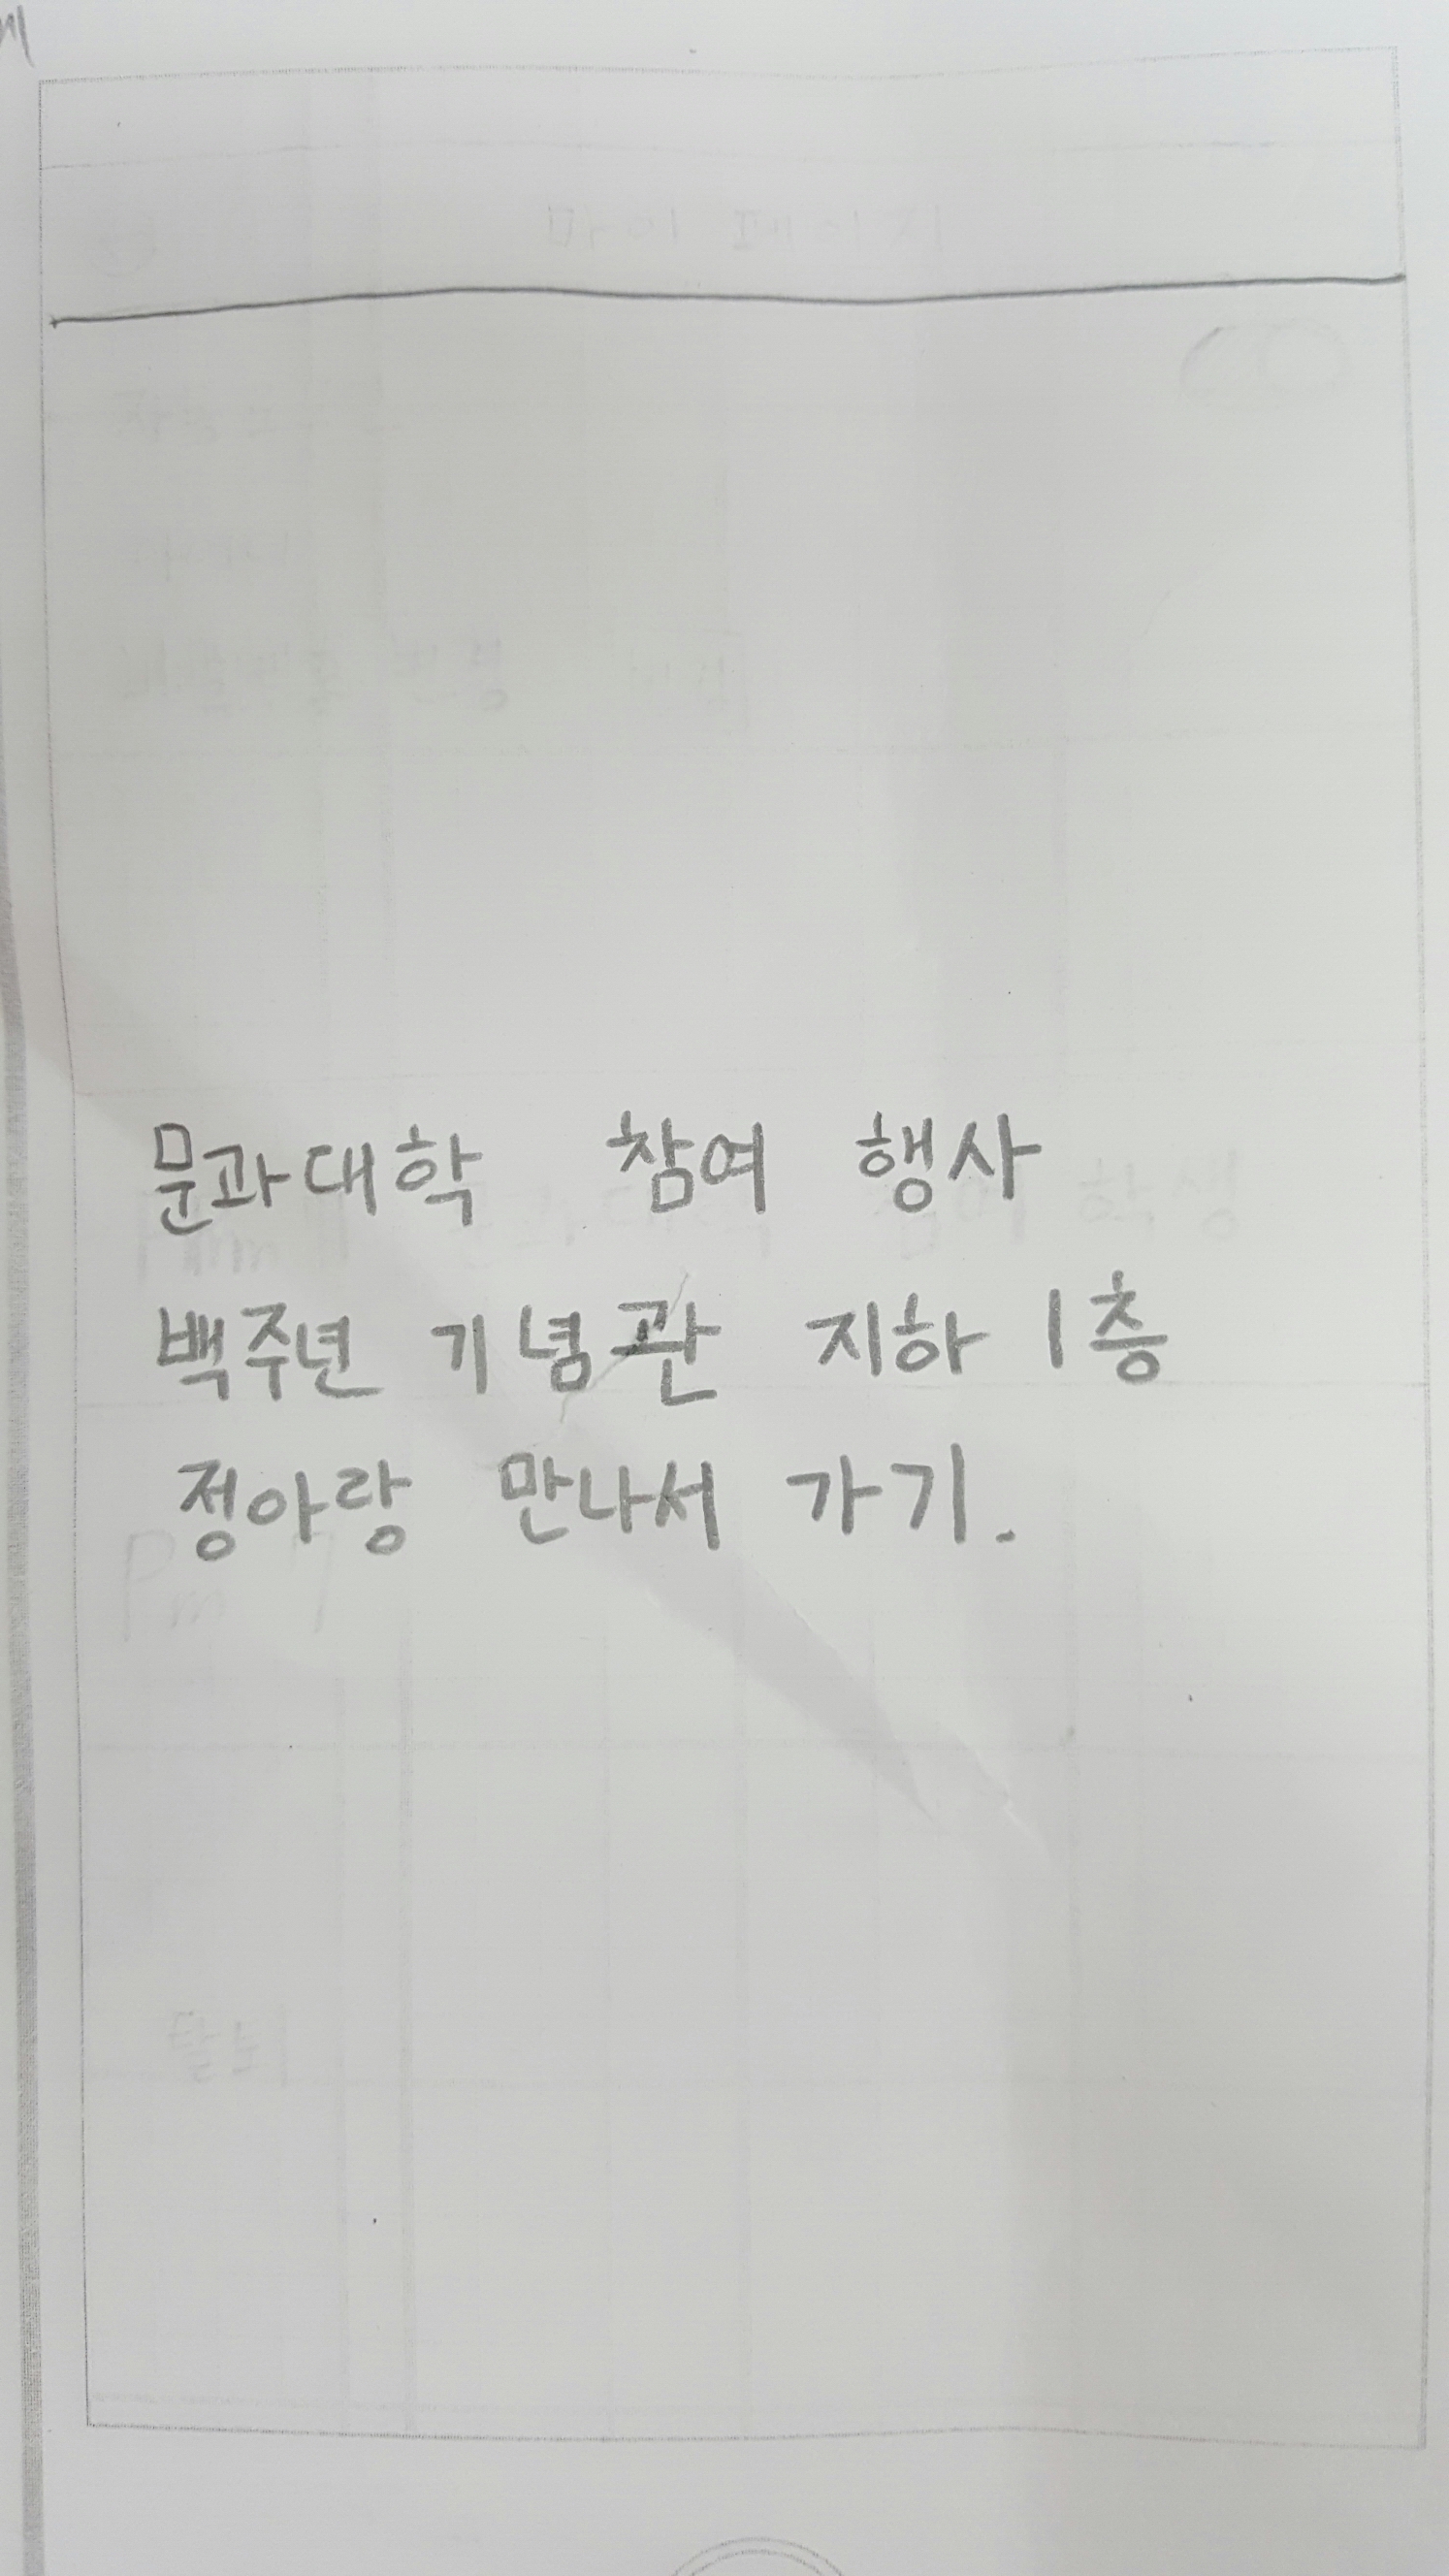 문과대학 참여 행사
백주년 기념관 지하 1층
정아랑 만나서 가기.